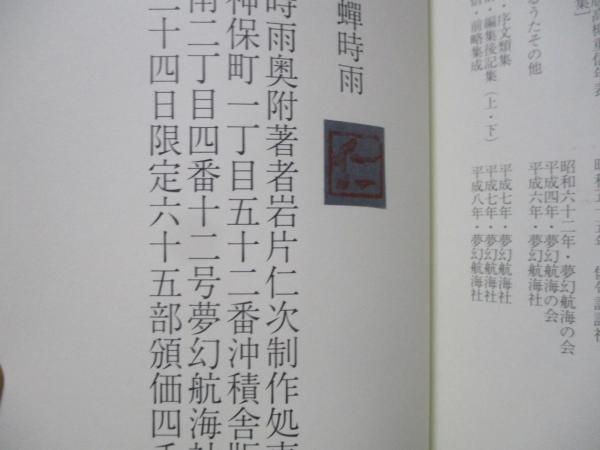 集]
るうたその他
・序文類集
・編集後記集（上・下）
信・前略集成
昭和六十二年・夢幻航海の会
平成四年・夢幻航海の会
平成六年・夢幻航海社
平成七年・夢幻航海社
平成七年・夢幻航海社
平成八年・夢幻航海社
蟬時雨
時雨奥附著者岩片仁次制作処
神保町一丁目五十二番沖積舎版
南二丁目四番十二号夢幻航海社
二十四日限定六十五部頒価四